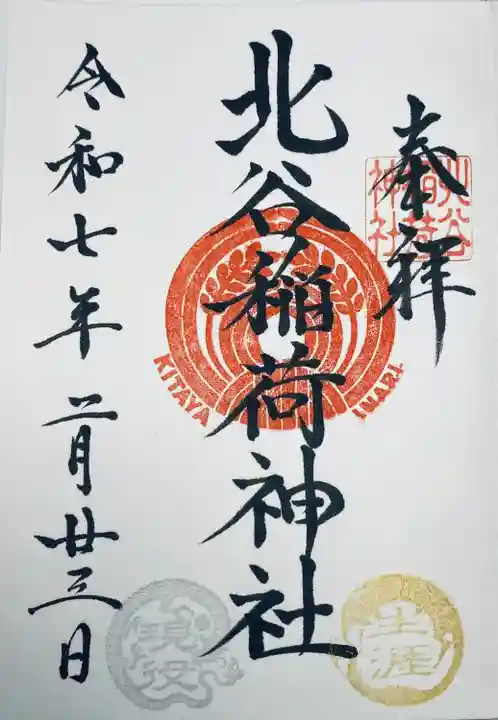 奉拝
北谷稲荷神社
北谷稲荷神社
KITAYA INARI
令和七年二月廿三日
現役
生涯